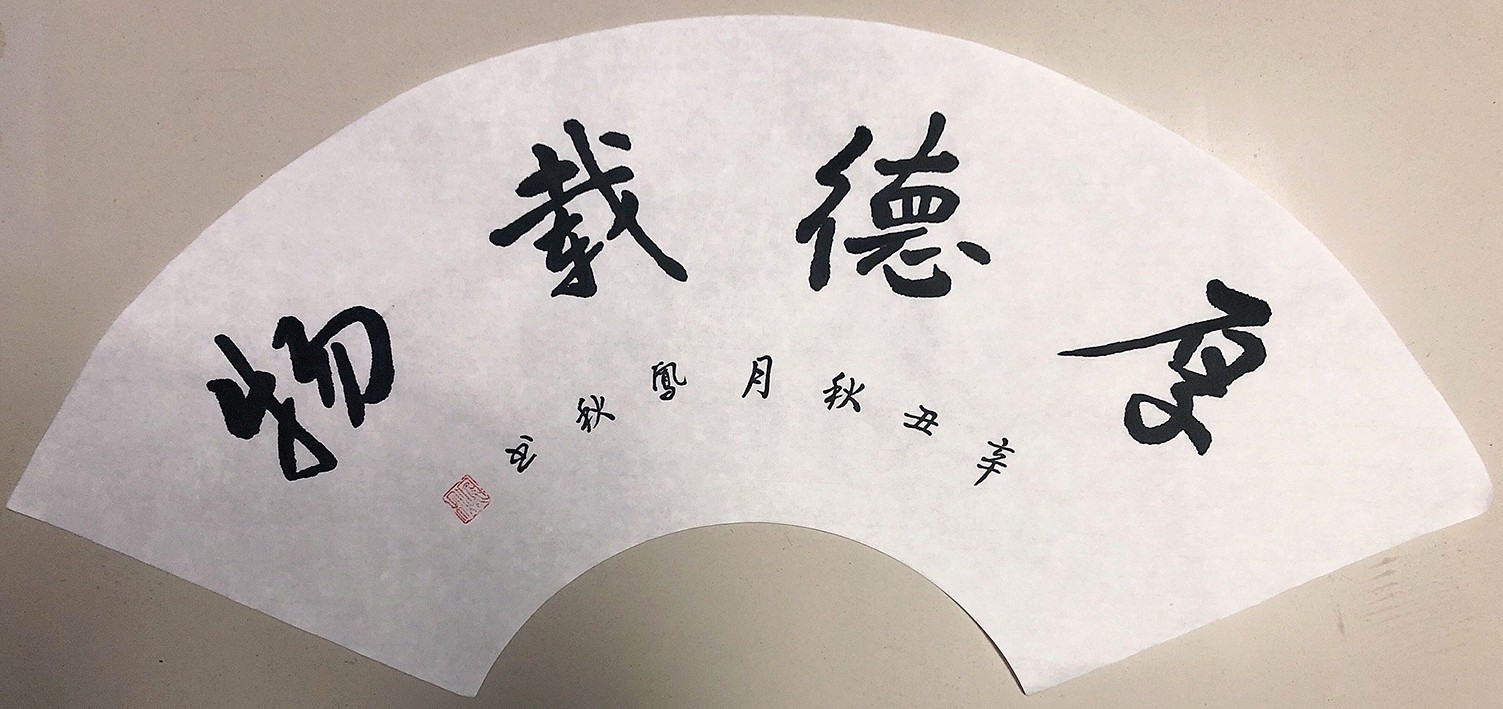 厚德载物
辛丑秋月鳳秋书